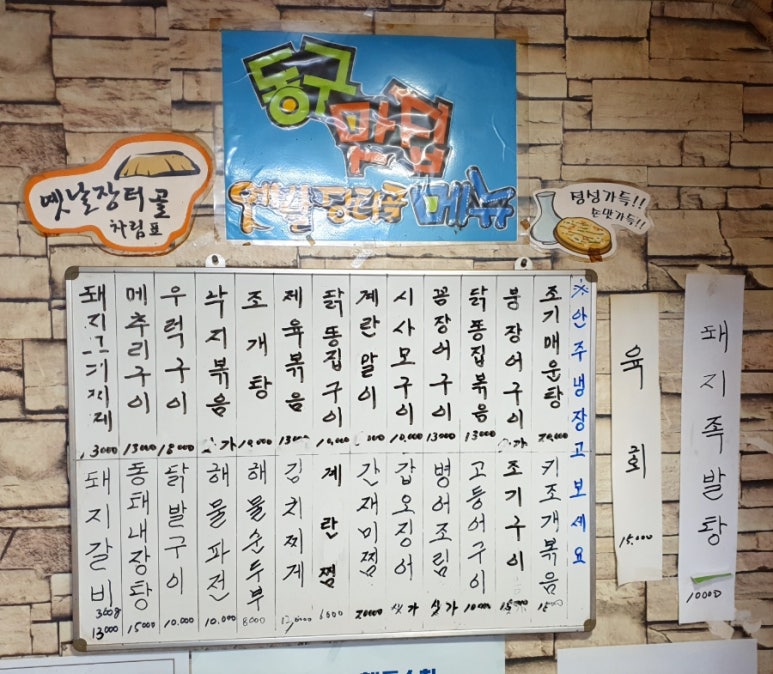 동구
맛집
옛날장터골 메뉴
옛날장터골
차림표
정성가득!!
손맛가득!!
돼지고기찌게 13000
메추리구이 13000
우럭구이 18000
낙지볶음 싯가
조개탕 10,000
제육볶음 13000
닭똥집구이 10,000
계란말이
시사모구이 10,000
꼼장어구이 13000
닭똥집볶음 13000
붕장어구이 싯가
조기매운탕 20,000
※안주냉장고보세요
돼지갈비 300g 13000
동태내장탕 15000
닭발구이 10.000
해물파전 10.000
해물순두부 8000
김치찌게
계란찜 6000
간재미찜 20000
갑오징어 싯가
병어조림 싯가
고등어구이 10000
조기구이 15000
키조개볶음
육회
15.000
돼지족발탕
10000